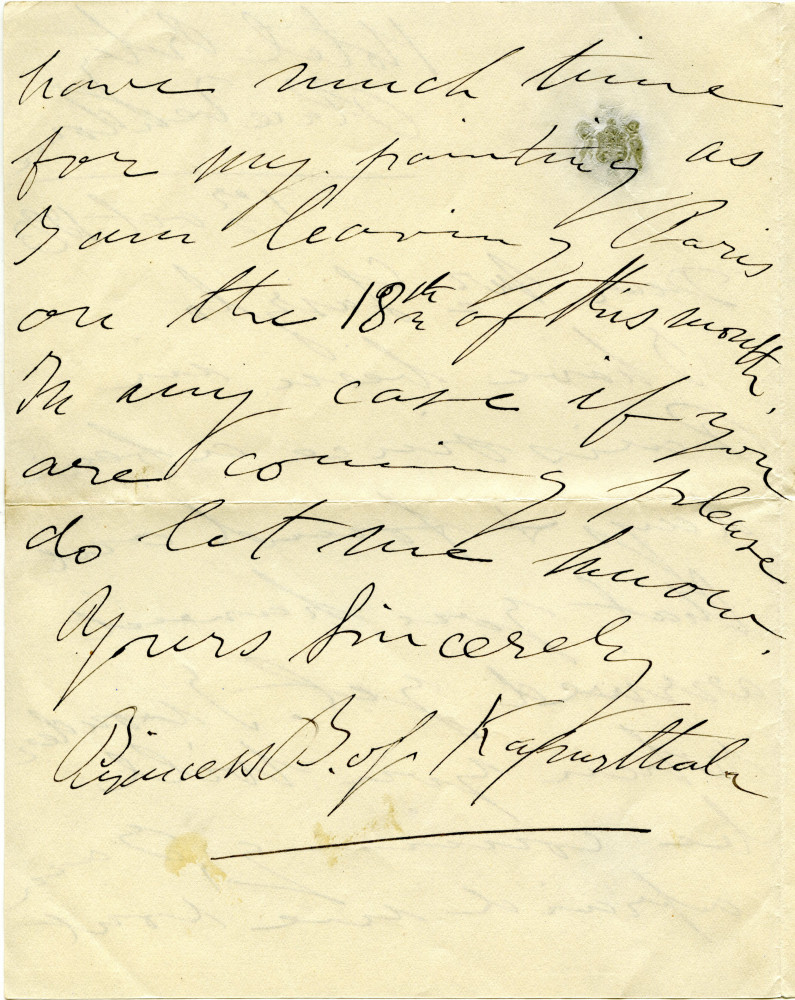 have much time
for my painting as
I am leaving Paris
on the 18th of this month.
In any case if you
are coming please
do let me know.
Yours Sincerely
Princess B. of Kapurthala